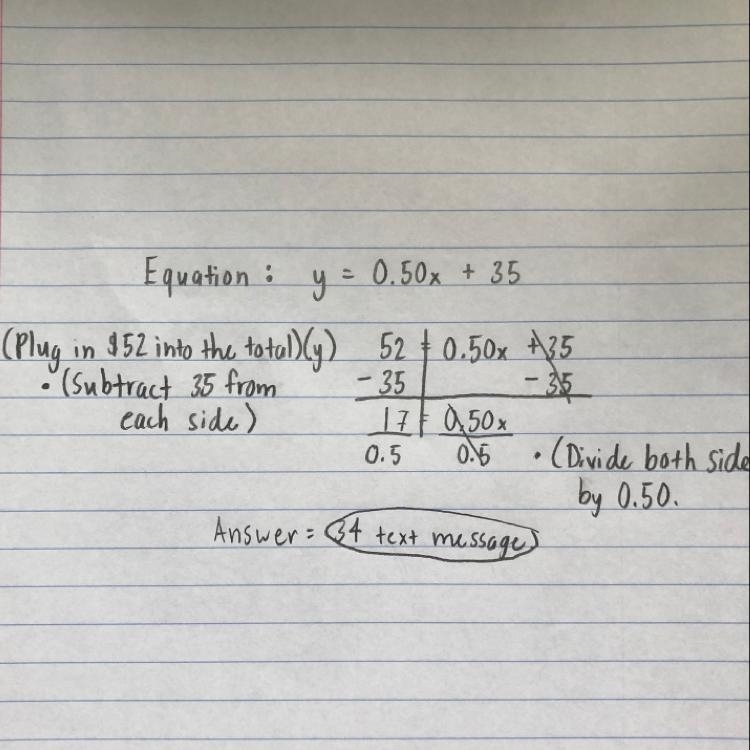 Equation: y = 0.50x + 35
(Plug in $52 into the total)(y) 52 = 0.50x + 35
• (Subtract 35 from - 35 - 35
each side) 17 = 0.50x
0.5 0.5 • (Divide both side
by 0.50.
Answer = 34 text message)